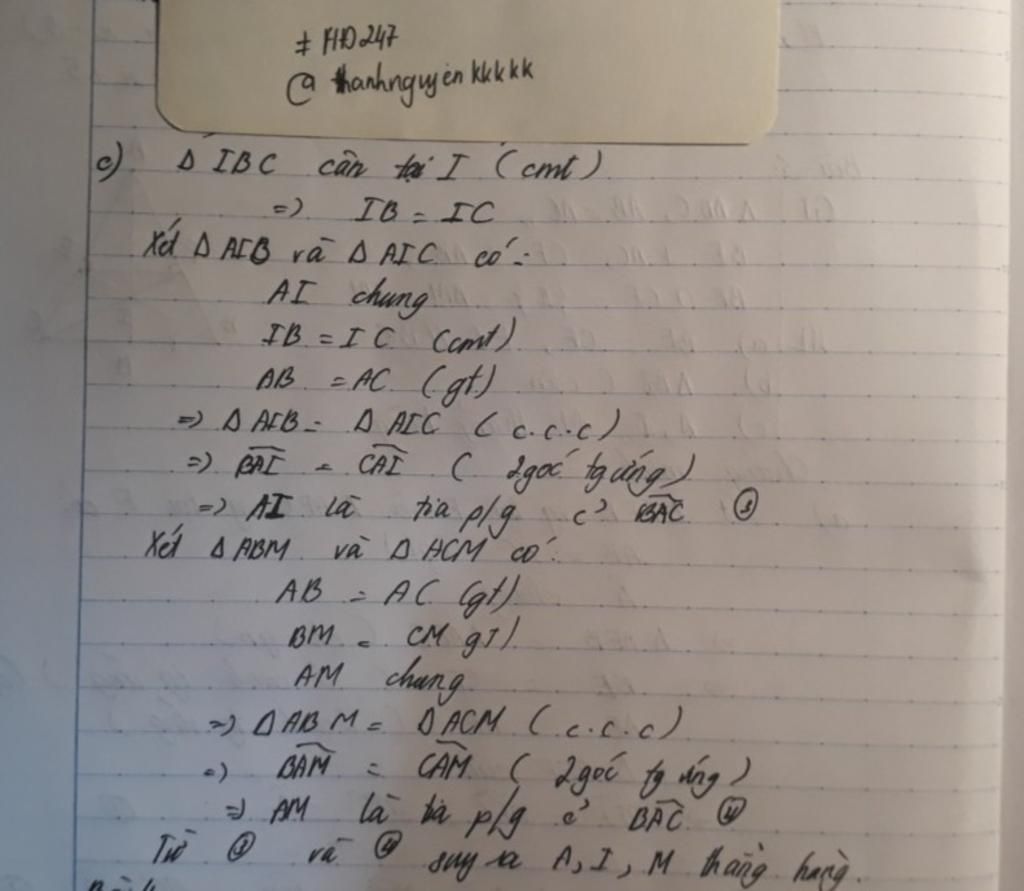 # HD247
@ thanhnguyenkkkkk
c) Δ IBC cân tại I (cmt)
=> IB = IC
Xét Δ AIB và Δ AIC có:
AI chung
IB = IC (cmt)
AB = AC (gt)
=> Δ AIB = Δ AIC (c.c.c)
=> BAI = CAI (2 góc tg ứng)
=> AI là tia p/g c' BAC ③
Xét Δ ABM và Δ ACM có:
AB = AC (gt)
BM = CM gt)
AM chung
=> Δ ABM = Δ ACM (c.c.c)
=> BAM = CAM (2 góc tg ứng)
=> AM là tia p/g c' BAC ④
Từ ③ và ④ suy ra A, I, M thẳng hàng.